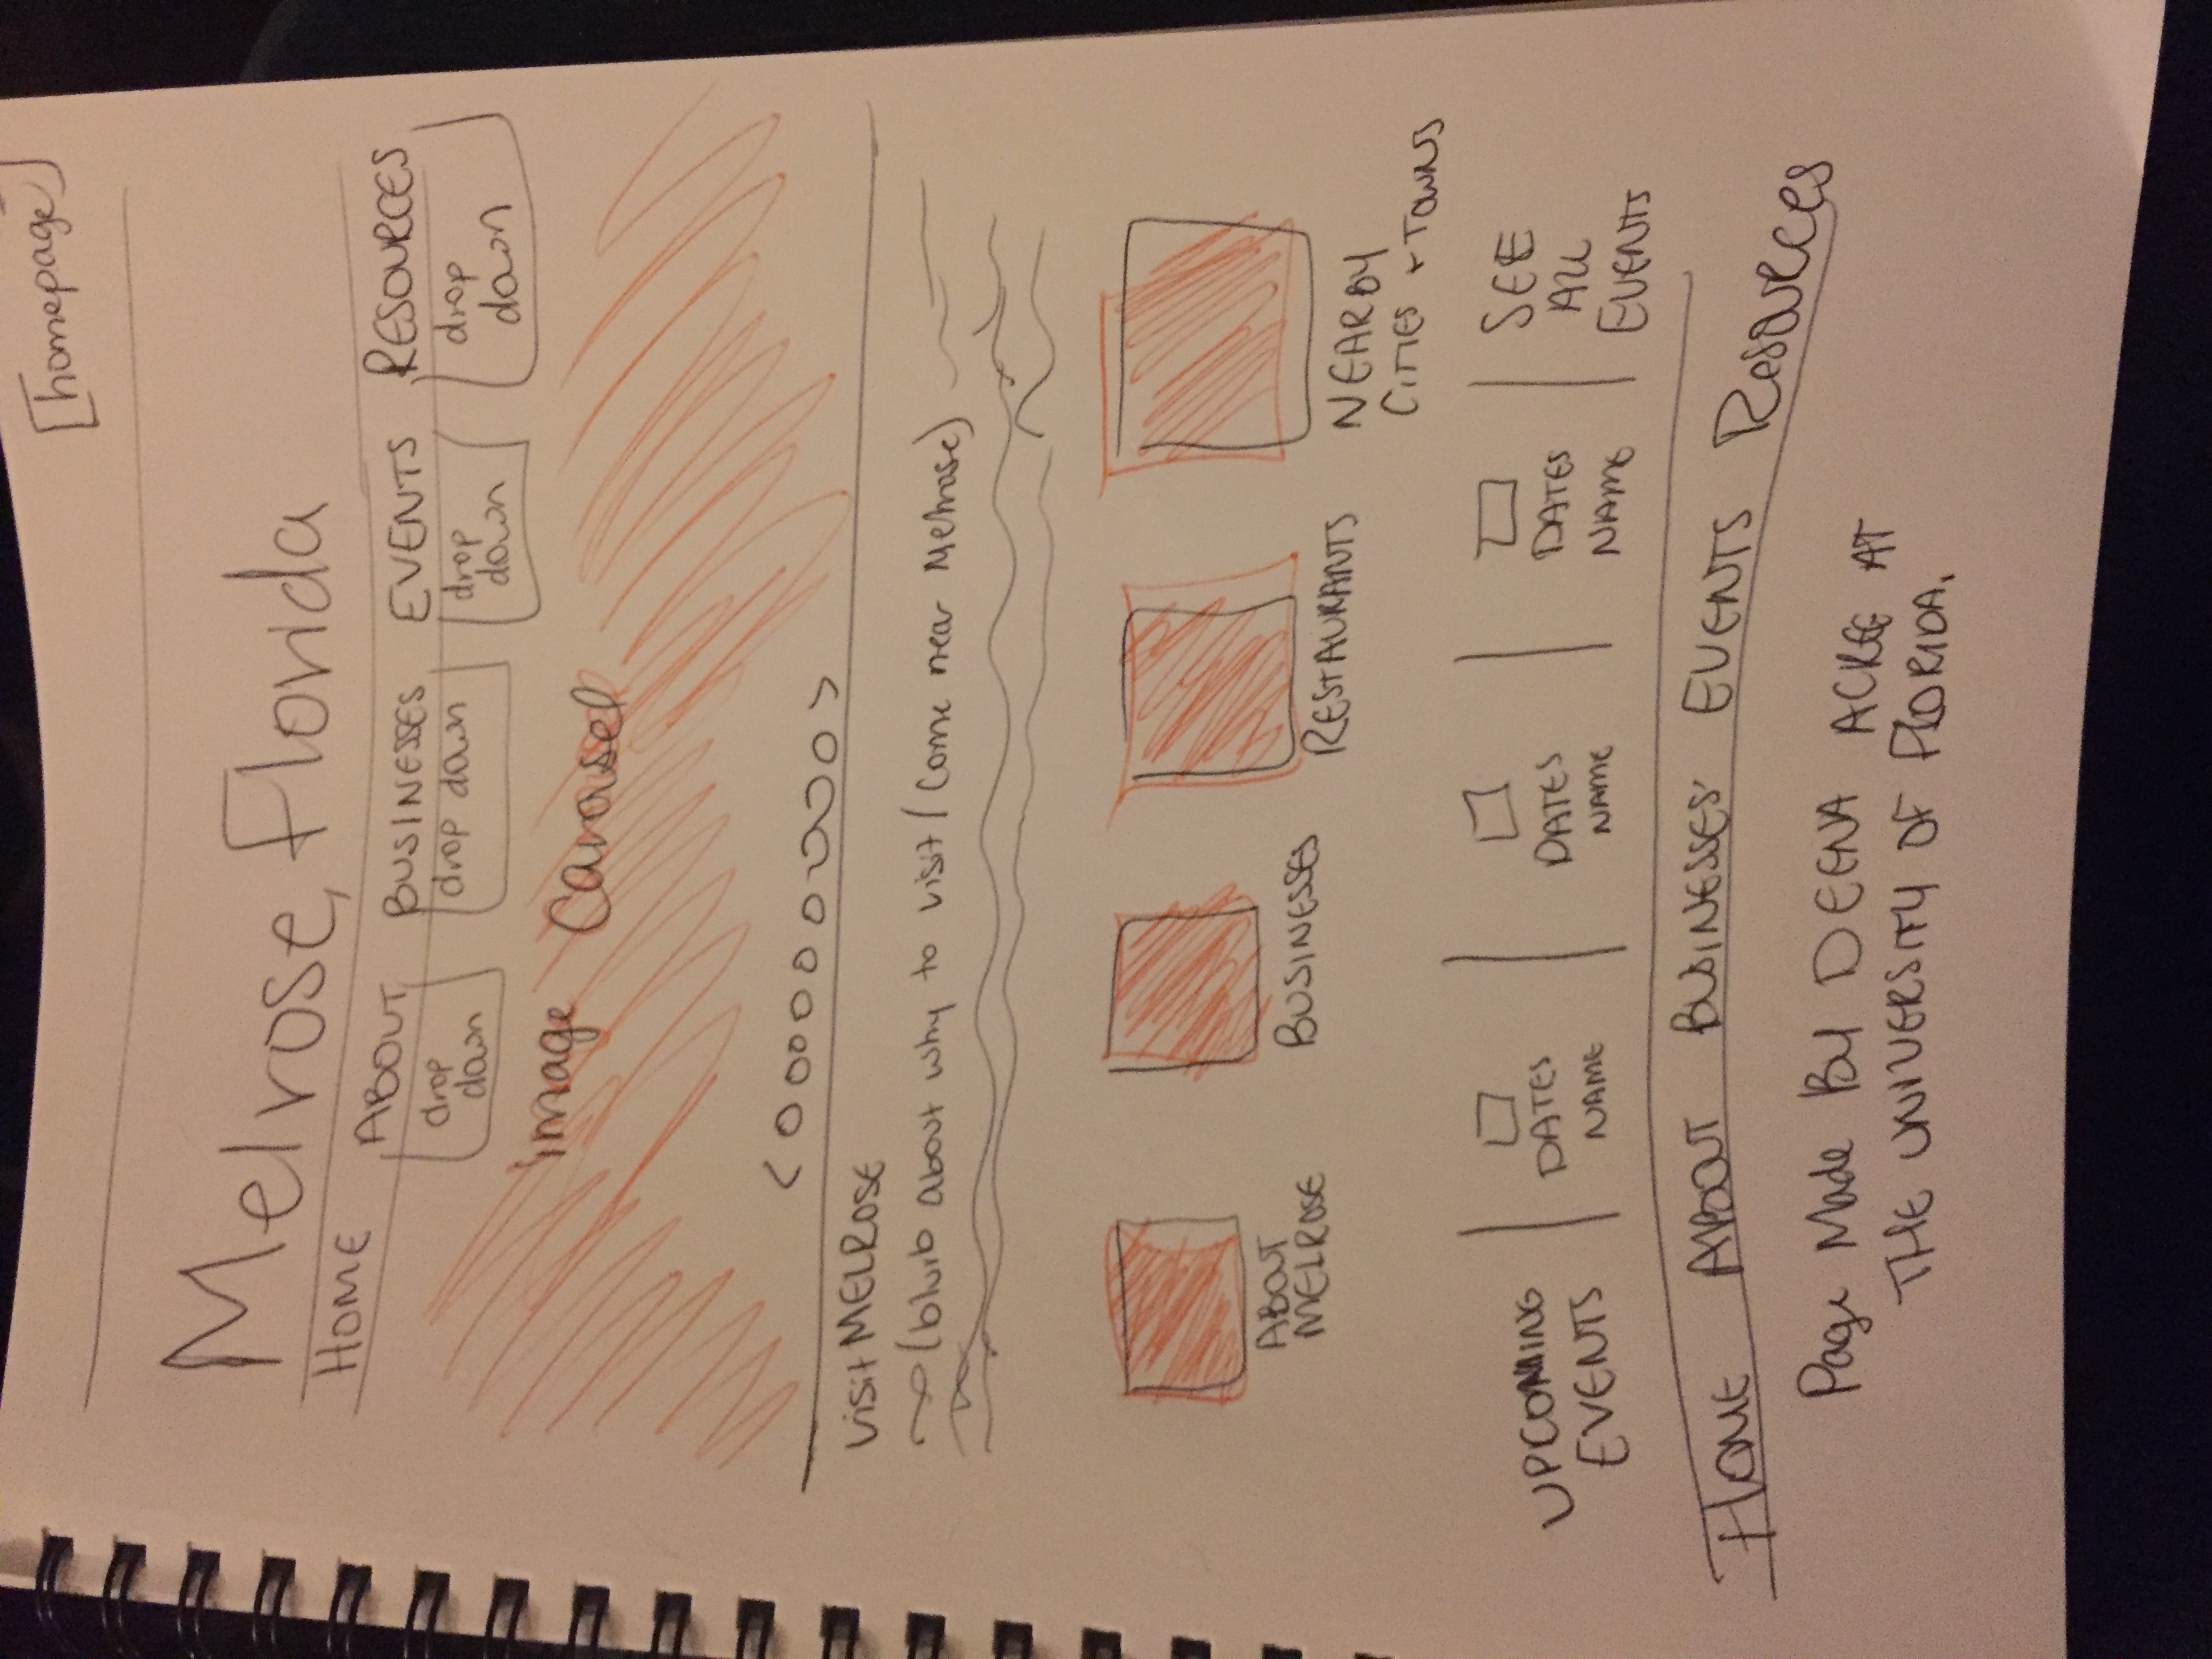 [homepage]
Melrose, Florida
HOME ABOUT BUSINESSES EVENTS RESOURCES
drop down drop down drop down drop down
image Carasel
< 0000000000 >
Visit MELROSE
(blurb about why to visit / come near Melrose)
ABOUT MELROSE
BUSINESSES
RESTAURANTS
NEARBY
CITIES + TOWNS
UPCOMING EVENTS
DATES NAME
DATES NAME
DATES NAME
SEE ALL EVENTS
HOME ABOUT BUSINESSES EVENTS Resources
Page Made By DEENA ACREE AT
THE UNIVERSITY OF FLORIDA.